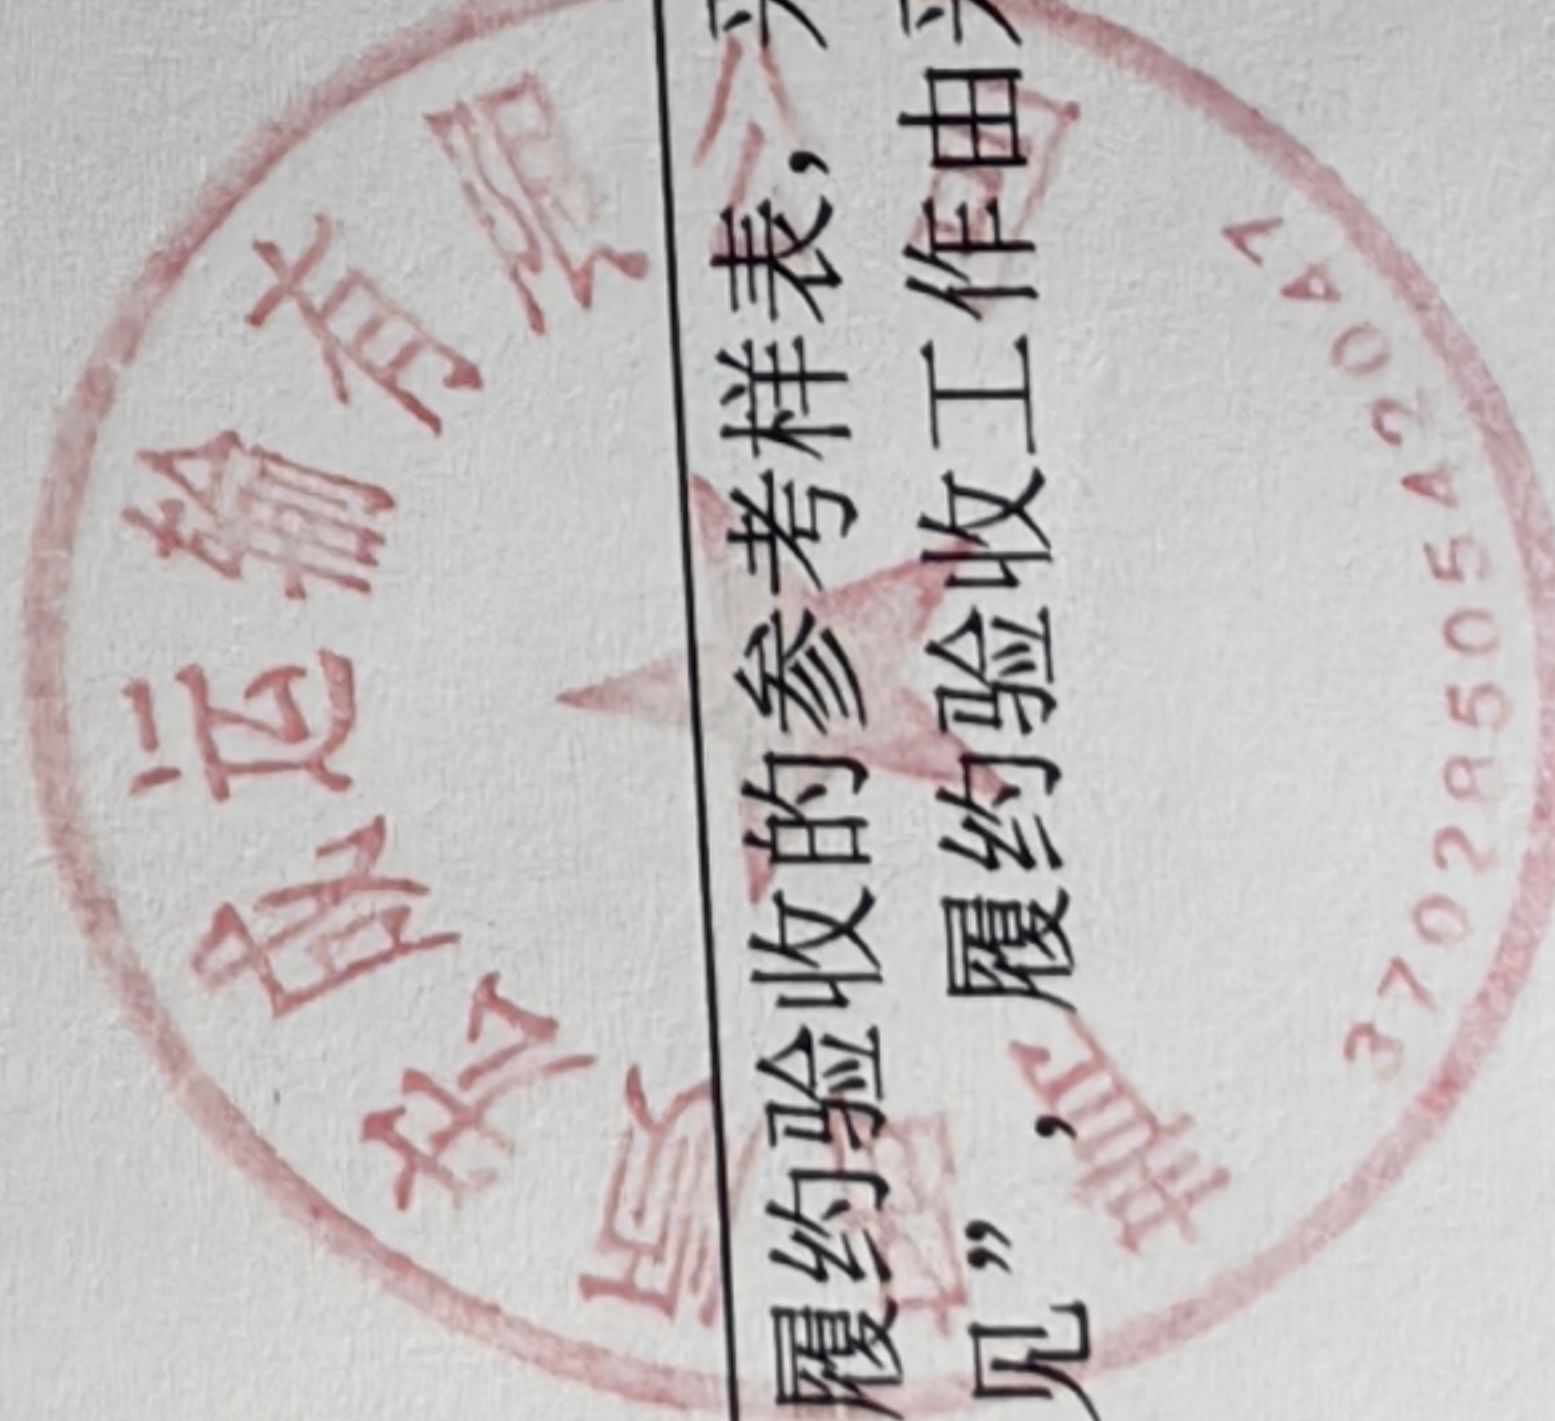 履约验收的参考样表，
见”，履约验收工作由
青岛
运输有限公司
3702850542047